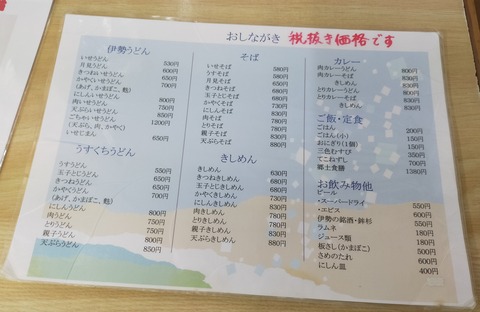 おしながき 税抜き価格です
伊勢うどん
いせうどん 530円
月見うどん 600円
きつねいせうどん 600円
かやくいせうどん 700円
(あげ、かまぼこ、麩)
にしんいせうどん 800円
肉いせうどん 750円
天ぷらいせうどん 850円
ごちゃいせうどん 1200円
(天ぷら、肉、かやく)
いせじまん 650円
うすくちうどん
うすうどん 550円
玉子とじうどん 650円
きつねうどん 650円
かやくうどん 700円
(あげ、かまぼこ、麩)
にしんうどん 800円
肉うどん 750円
とりうどん 750円
親子うどん 800円
天ぷらうどん 850円
そば
いせそば 580円
うすそば 580円
きつねそば
玉子とじそば
かやくそば
にしんそば
肉そば
とりそば
親子そば
天ぷらそば 880円
きしめん
きしめん 630円
きつねきしめん 680円
玉子とじきしめん 680円
かやくきしめん
にしんきしめん
肉きしめん
とりきしめん
親子きしめん
天ぷらきしめん 880円
カレー
肉カレーうどん 800円
肉カレーそば 830円
きしめん 830円
とりカレーうどん 800円
とりカレーそば 830円
きしめん 830円
ご飯・定食
ごはん 200円
ごはん(小) 150円
おにぎり(1個) 150円
三色むすび 350円
てこねずし 700円
郷土食膳 1380円
お飲み物他
ビール
・スーパードライ 550円
・エビス 600円
伊勢の銘酒・鉾杉 550円
ラムネ 180円
ジュース類 180円
板さし(かまぼこ) 500円
さめのたれ 600円
にしん皿 400円